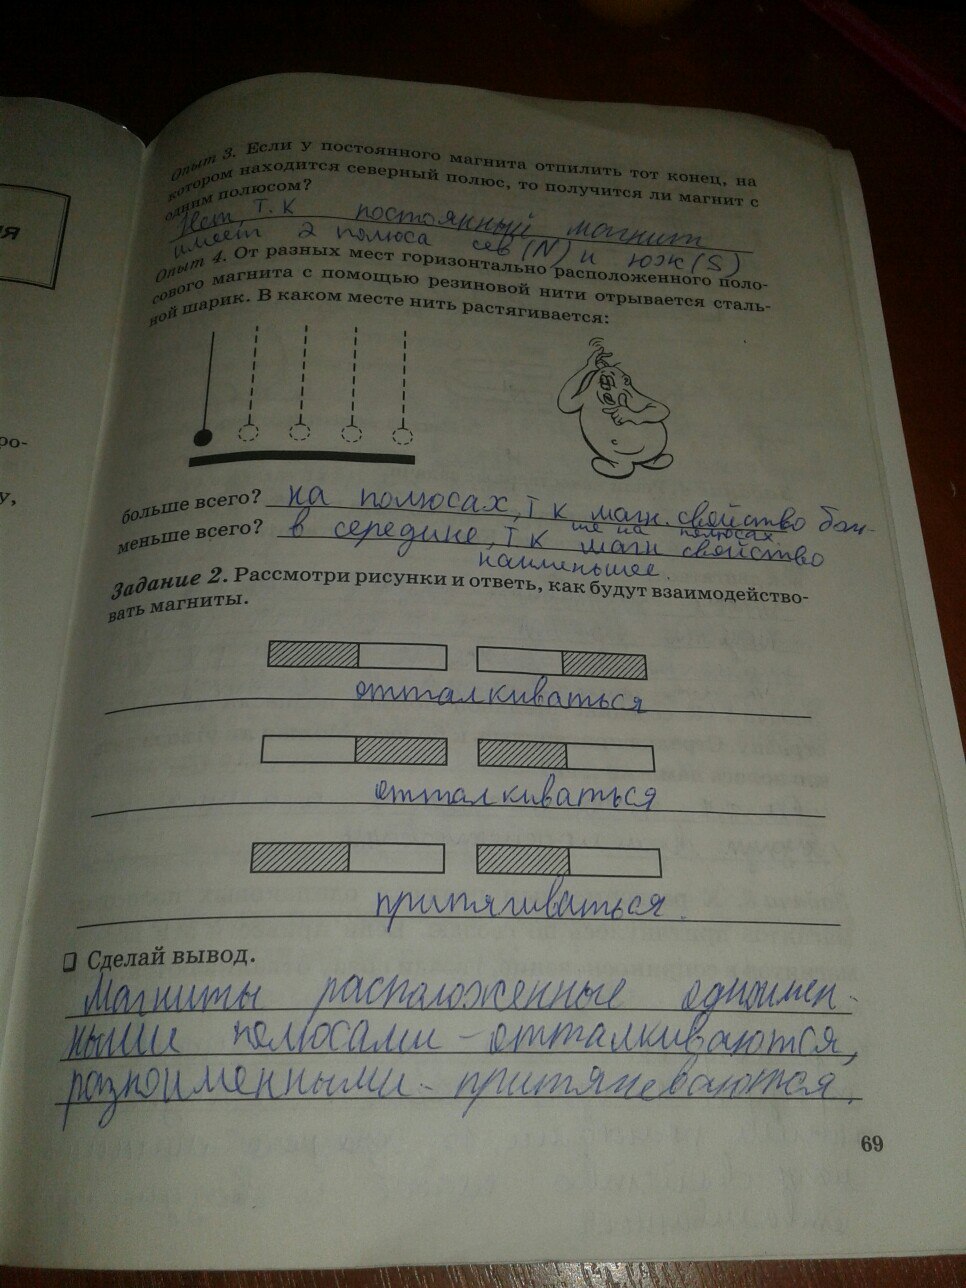 Я
ро-
у,
Опыт 3. Если у постоянного магнита отпилить тот конец, на
котором находится северный полюс, то получится ли магнит с
одним полюсом?
Нет, т.к постоянный магнит
имеет 2 полюса сев (N) и юж (S)
Опыт 4. От разных мест горизонтально расположенного поло-
сового магнита с помощью резиновой нити отрывается сталь-
ной шарик. В каком месте нить растягивается:
больше всего? на полюсах, т к магн. свойство боль-
ше на полюсах
меньше всего? в середине, т к магн свойство
наименьшее.
Задание 2. Рассмотри рисунки и ответь, как будут взаимодейство-
вать магниты.
отталкиваться
отталкиваться
притягиваться.
Сделай вывод.
Магниты расположенные одноимен-
ными полюсами - отталкиваются,
разноименными - притягеваются.
69